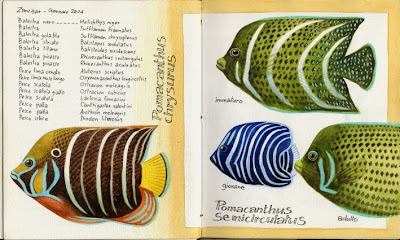 Zanzibar - Gennaio 2014
Balestra nero Melichthys niger
Balestra Sufflamen fraenatus
Balestra gola blu Sufflamen chrysopterus
Balestra striato Balistapus undulatus
Balestra titano Balistoides viridescens
Balestra picasso Rhinecanthus rectangulus
Balestra picasso Rhinecanthus aculeatus
Pesce lima ornato Aluterus scriptus
Pesce lima naso lungo Oxymonacanthus longirostris
Pesce scatola Ostracion meleagris
Pesce scatola giallo Ostracion cubicus
Pesce scatola Lactoria fornasini
Pesce palla Canthigaster valentini
Pesce palla Arothron meleagris
Pesce istrice Diodon
Pomacanthus
chrysurus
immaturo
giovane
adulto
Pomacanthus
Semicirculatus